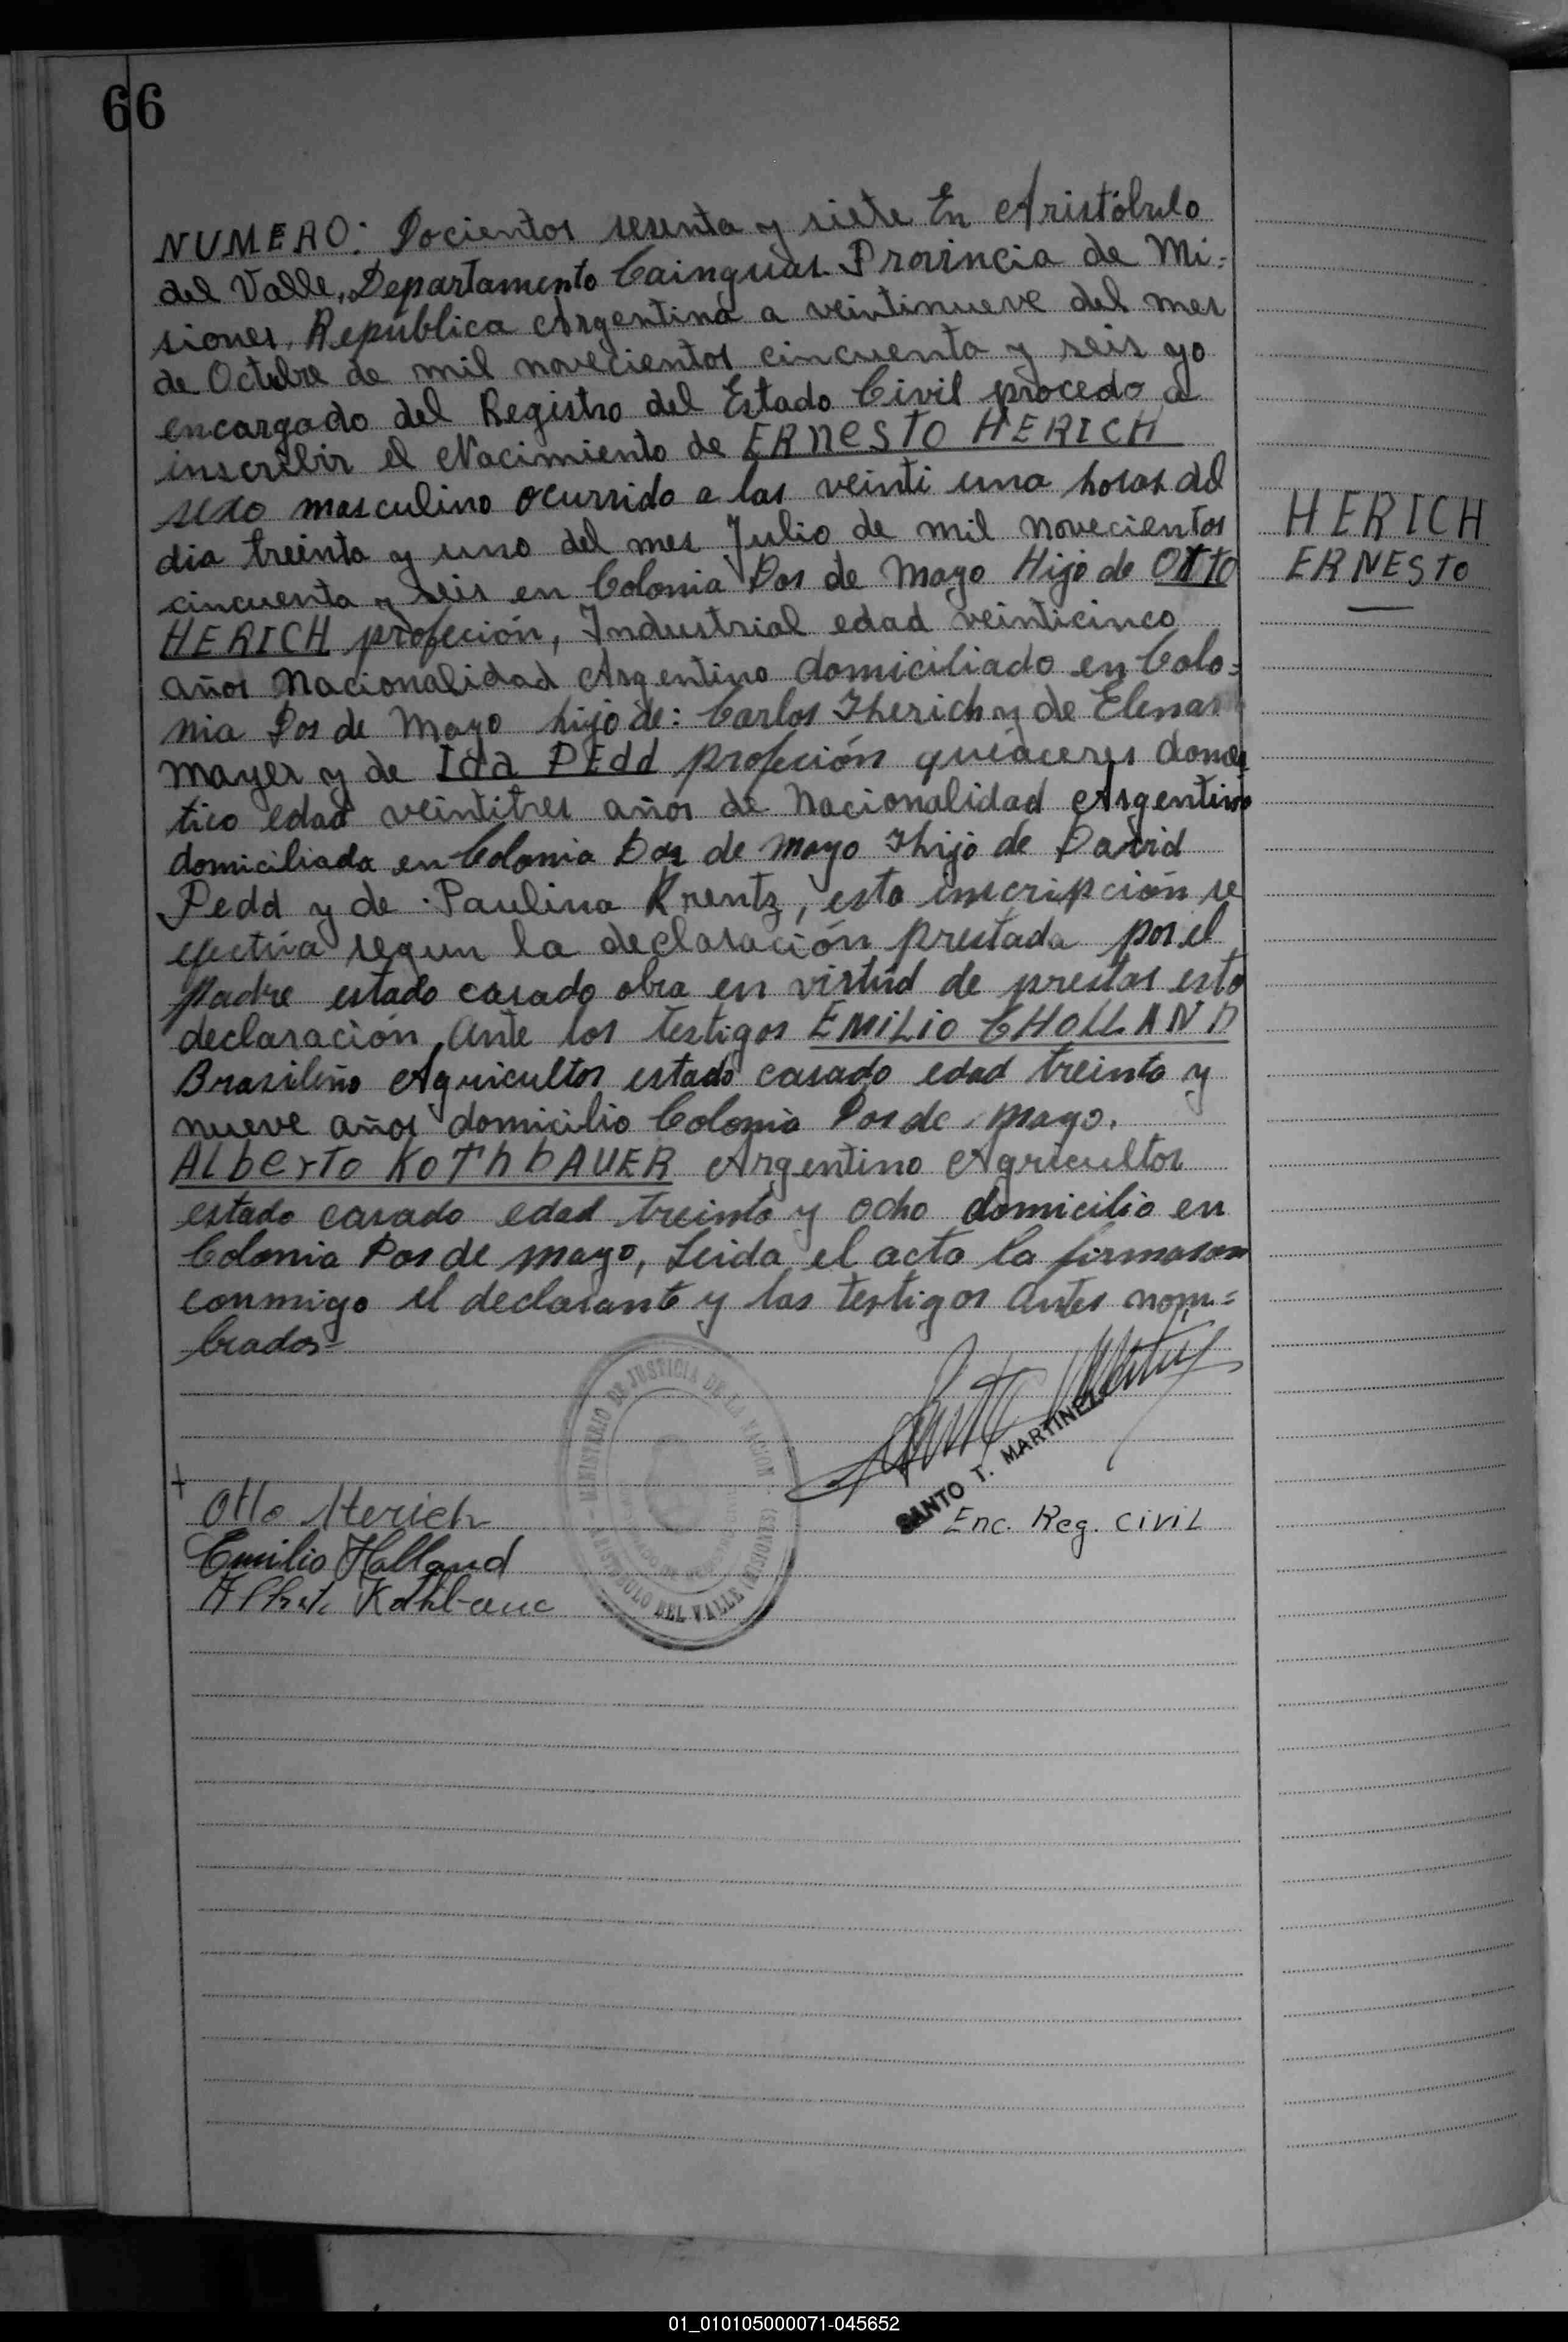 66
NUMERO: Docientos sesenta y siete En Aristóbulo
del Valle, Departamento Cainguas Provincia de Mi=
siones, República Argentina a veintinueve del mes
de Octubre de mil novecientos cincuenta y seis yo
encargado del Registro del Estado Civil procedo a
inscribir el Nacimiento de ERNESTO HERICH
sexo masculino ocurrido a las veinti una horas del
dia treinta y uno del mes Julio de mil novecientos
cincuenta y seis en Colonia Dos de Mayo Hijo de OTTO
HERICH profeción, Industrial edad veinticinco
años Nacionalidad Argentino domiciliado en Colo=
nia Dos de Mayo hijo de: Carlos Iherich y de Elena
Mayer y de Ida PEdd profeción quiaceres domes
tico edad veintitres años de Nacionalidad Argentino
domiciliada en Colonia Dos de Mayo Ihijo de David
Pedd y de Paulina Krentz, esta inscripción se
efectúa segun la declaración prestada por el
padre estado casado obra en virtúd de prestar esta
declaración, ante los testigos EMILIO CHOLLAND
Brasileño Agricultor estado casado edad treinta y
nueve años domicilio Colonia Dos de Mayo.
Alberto KothbAUER Argentino Agricultor
estado casado edad treinta y ocho domicilio en
Colonia Dos de mayo, Leida el acta la firmaron
conmigo el declarante y los testigos antes nom=
brados=
HERICH
ERNESTO
MINISTERIO DE JUSTICIA DE LA NACION
ARISTOBULO DEL VALLE (MISIONES)
SANTO T. MARTINEZ
Enc. Reg. Civil
Otto Herich
Emilio Holland
01_010105000071-045652